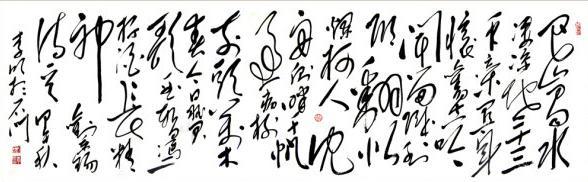 巴山楚水
凄凉地二十三
年弃置身
怀旧空吟
闻笛赋到
乡翻似
烂柯人沉
舟侧畔千帆
过病树
前头万木
春今日听君
歌一曲暂凭
杯酒长精
神
刘禹锡
诗
于石门